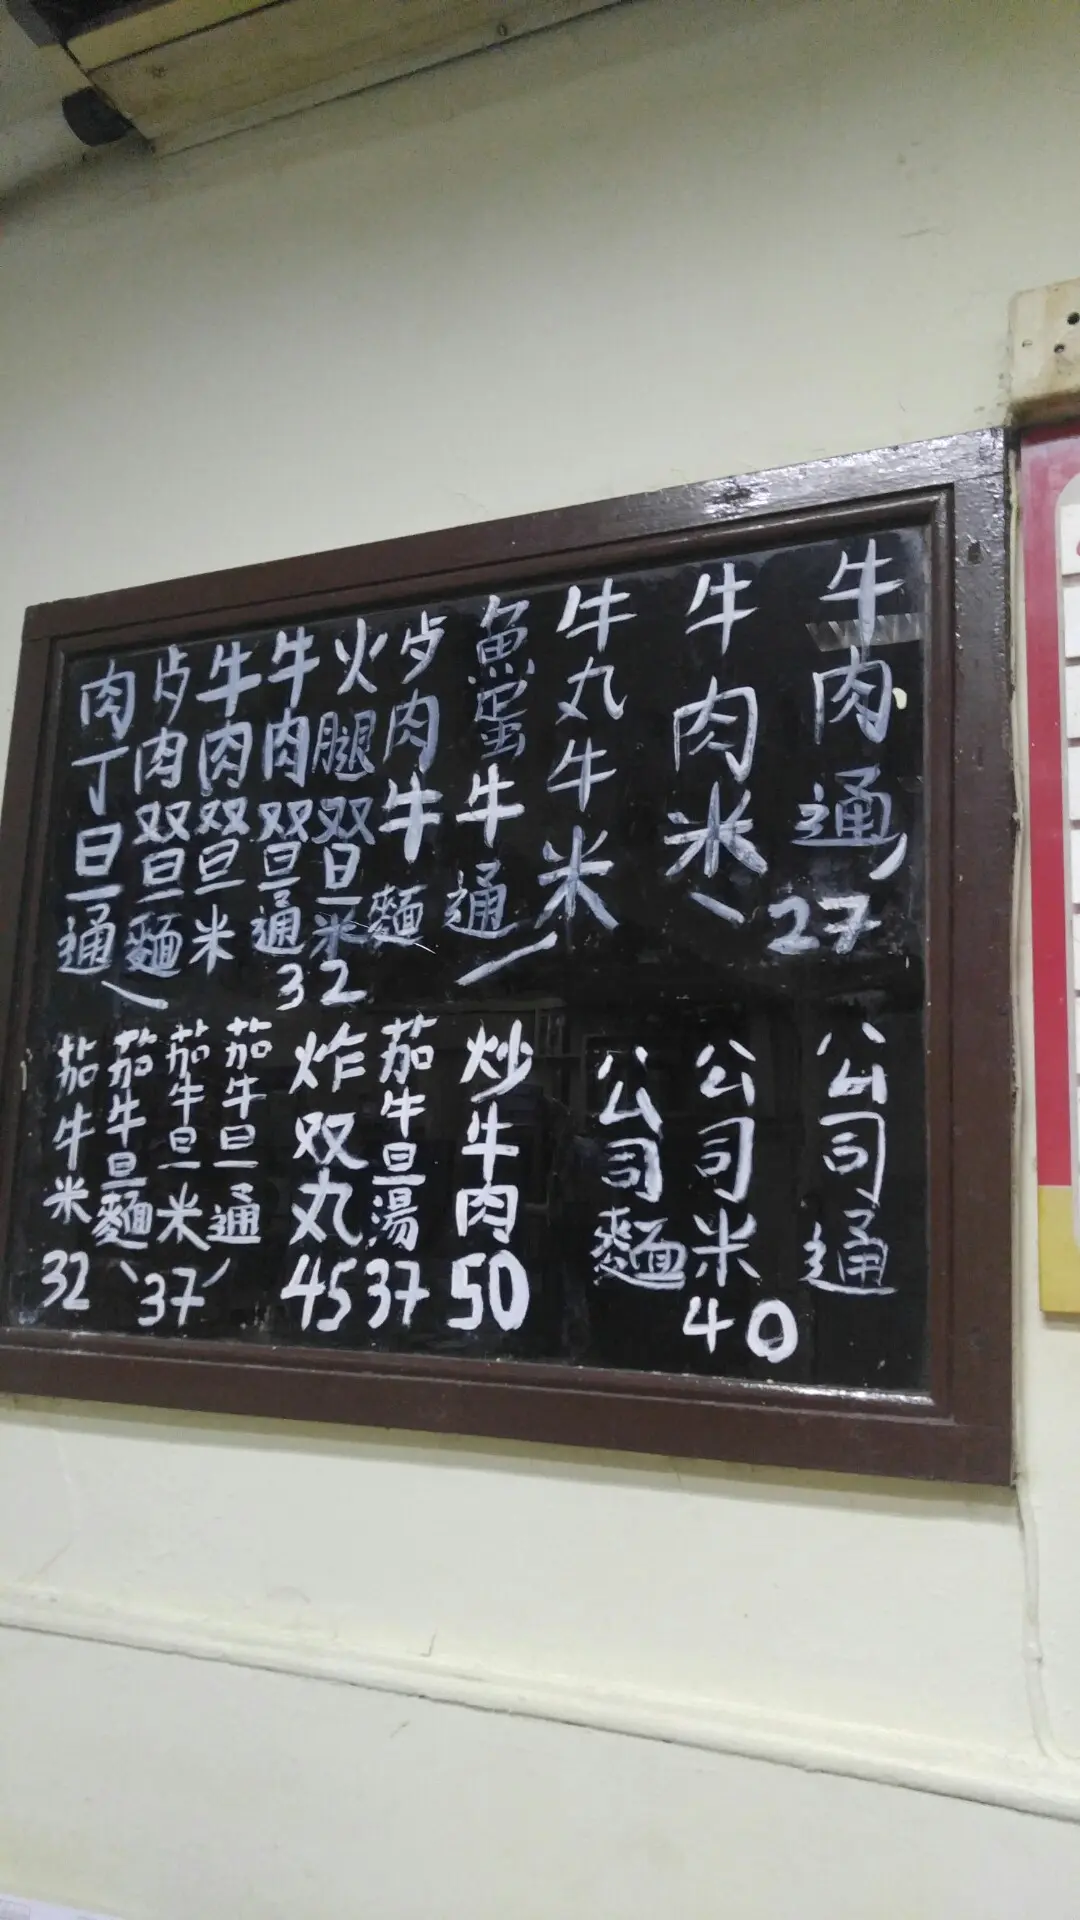 牛肉通
牛肉米
27
牛丸牛米
魚蛋牛通
歺肉牛麵
火腿双旦米
牛肉双旦通
牛肉双旦米
歺肉双旦麵
肉丁旦通
32
公司通
公司米
公司麵
40
炒牛肉
50
茄牛旦湯
37
炸双丸
45
茄牛旦通
茄牛旦米
茄牛旦麵
37
茄牛米
32